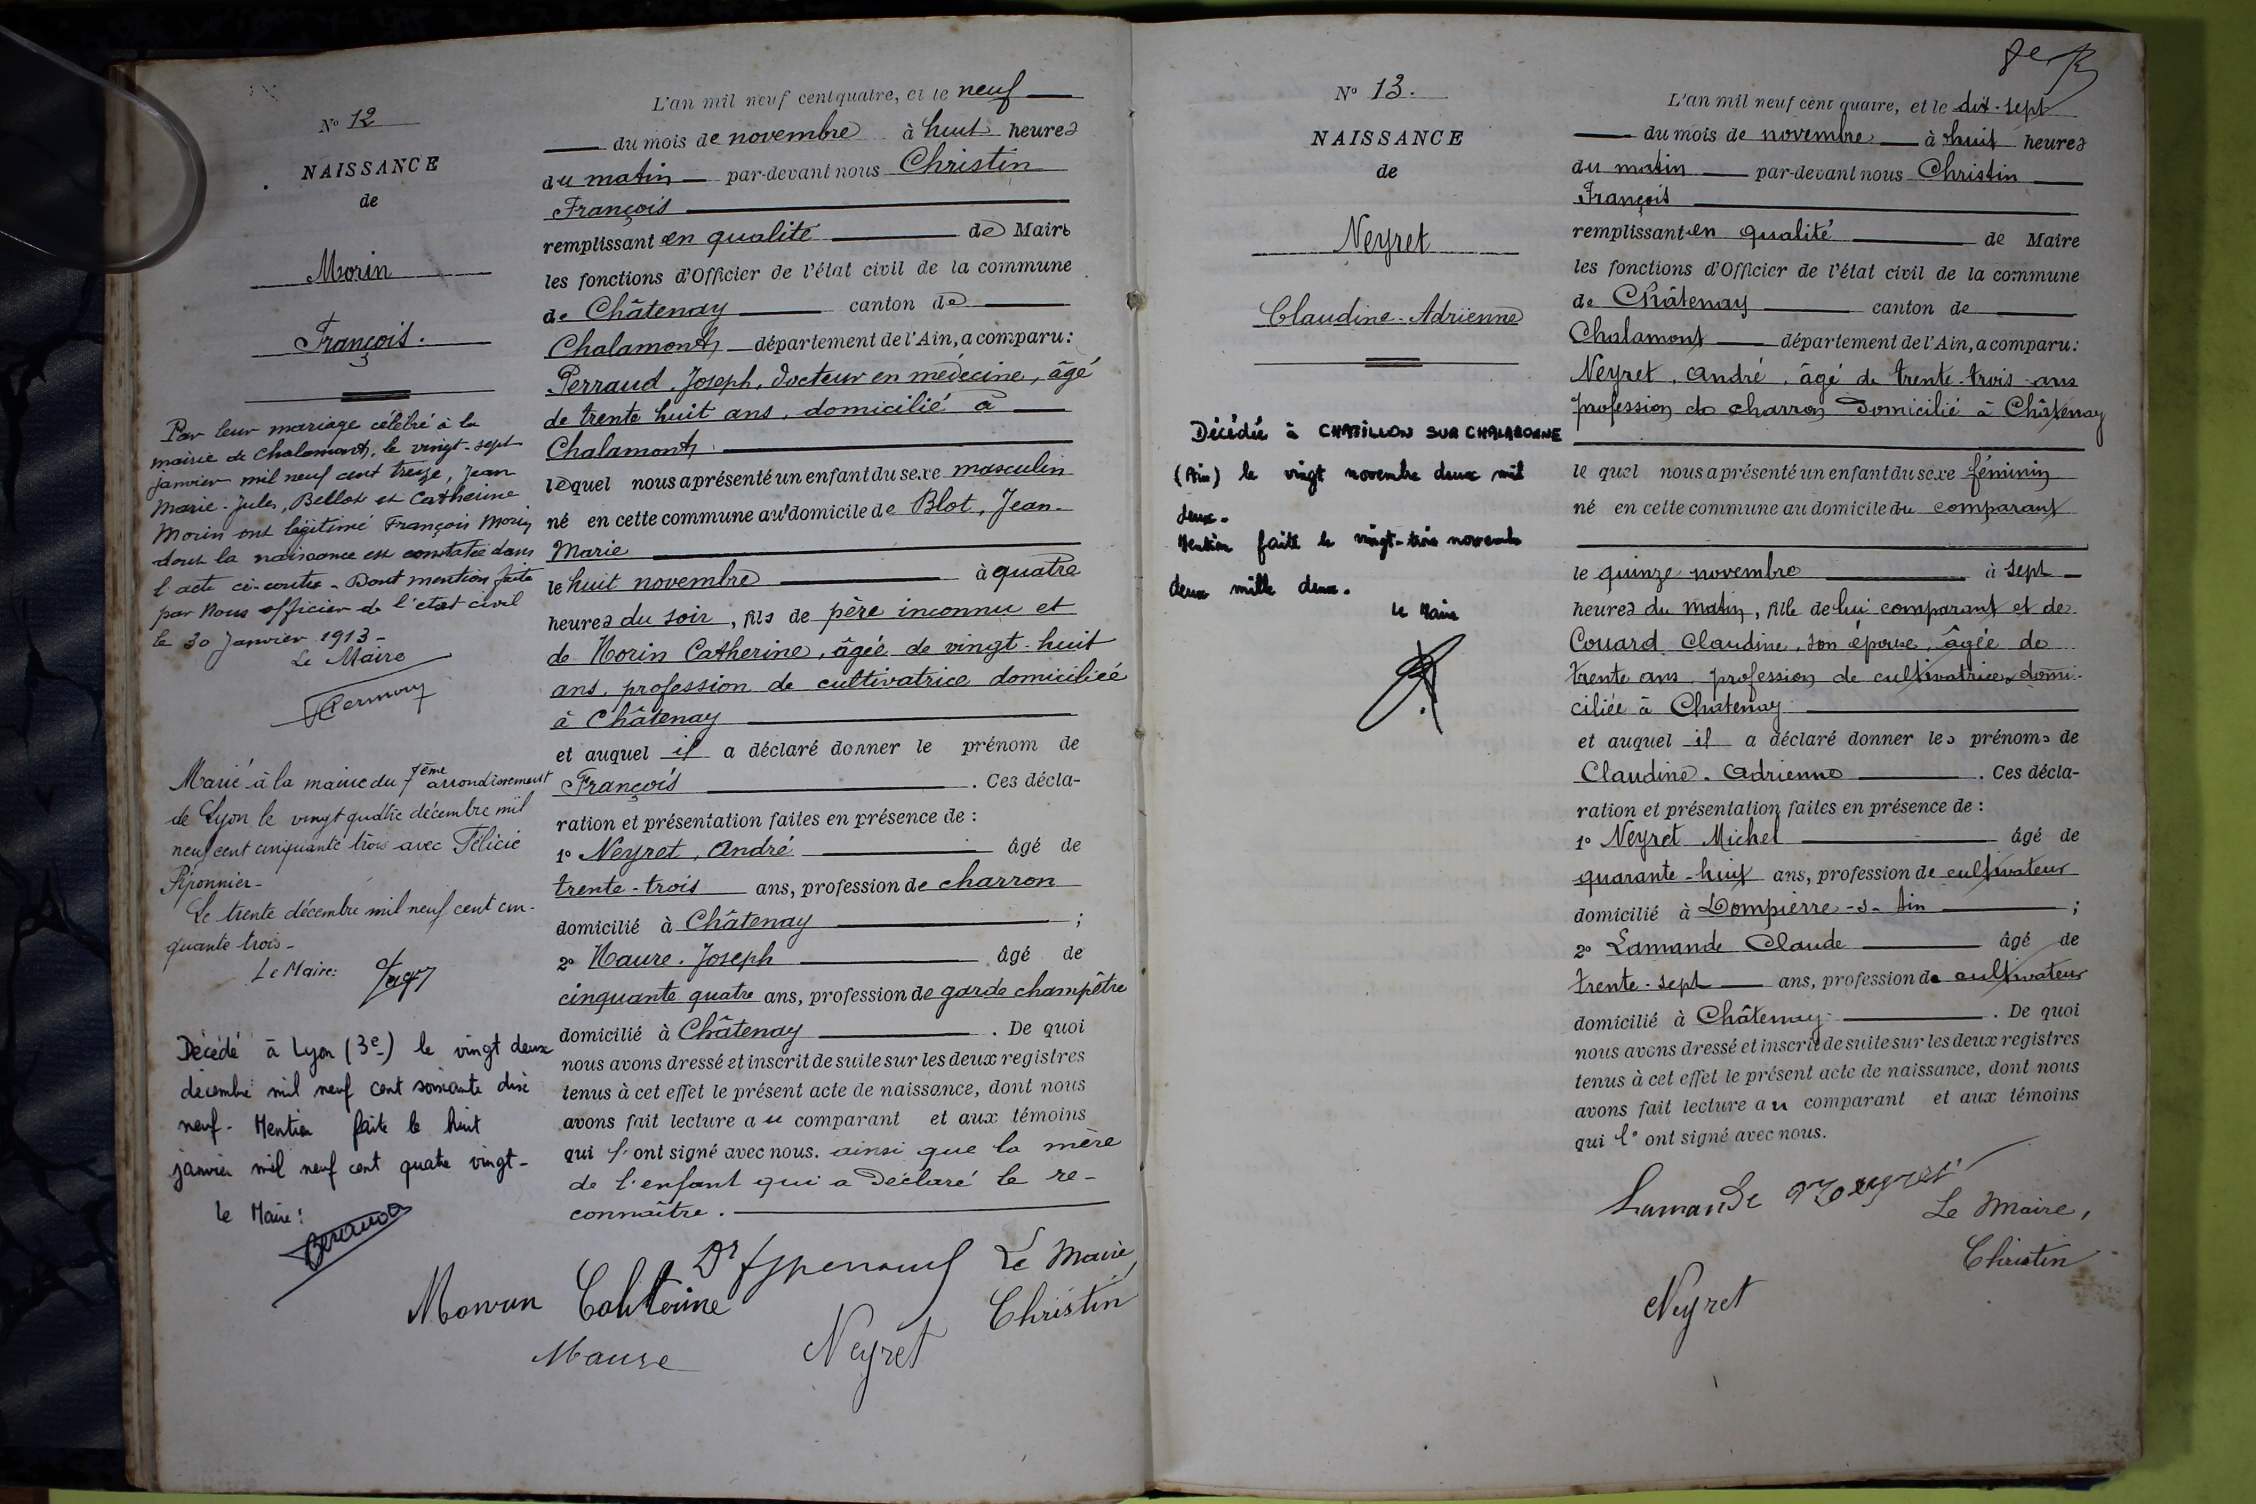 N° 12
NAISSANCE
de
Morin
François.
Par leur mariage célébré à la
mairie de Chalamont, le vingt-sept
janvier mil neuf cent treize, Jean
Marie-Jules, Bellot et Catherine
Morin ont légitimé François Morin
dont la naissance est constatée dans
l'acte ci-contre - Dont mention faite
par Nous officier de l'etat civil
le 30 Janvier 1913 -
Le Maire
Marié à la mairie du 7ème arrondissement
de Lyon le vingt quatre décembre mil
neuf cent cinquante trois avec Félicie
Piponnier -
Le trente décembre mil neuf cent cin-
quante trois -
Le Maire:
Décédé à Lyon (3e) le vingt deux
décembre mil neuf cent soixante dix
neuf - Mention faite le huit
janvier mil neuf cent quatre vingt -
Le Maire:
L'an mil neuf cent quatre, et le neuf
du mois de novembre à huit heures
du matin par-devant nous Christin
François
remplissant en qualité de Maire
les fonctions d'Officier de l'état civil de la commune
de Châtenay canton de
Chalamont département de l'Ain, a comparu:
Perraud, Joseph, docteur en médecine, âgé
de trente huit ans, domicilié à
Chalamont
lequel nous a présenté un enfant du sexe masculin
né en cette commune au domicile de Blot, Jean-
Marie
le huit novembre à quatre
heures du soir, fils de père inconnu et
de Morin Catherine, âgée de vingt-huit
ans, profession de cultivatrice domiciliée
à Châtenay
et auquel il a déclaré donner le prénom de
François . Ces décla-
ration et présentation faites en présence de :
1° Neyret, André âgé de
trente-trois ans, profession de charron
domicilié à Châtenay ;
2° Maure. Joseph âgé de
cinquante quatre ans, profession de garde champêtre
domicilié à Châtenay . De quoi
nous avons dressé et inscrit de suite sur les deux registres
tenus à cet effet le présent acte de naissance, dont nous
avons fait lecture au comparant et aux témoins
qui l'ont signé avec nous. ainsi que la mère
de l'enfant qui a déclaré le re-
connaître.
Dr Le Maire,
Catherine Christin
Maure Neyret
N° 13.
NAISSANCE
de
Neyret
Claudine-Adrienne
Décédée à CHATILLON SUR CHALARONNE
(Ain) le vingt novembre deux mil
deux.
Mention faite le vingt-trois novembre
deux mille deux.
Le Maire
L'an mil neuf cent quatre, et le dix-sept
du mois de novembre à huit heures
du matin par-devant nous Christin
François
remplissant en qualité de Maire
les fonctions d'Officier de l'état civil de la commune
de Châtenay canton de
Chalamont département de l'Ain, a comparu:
Neyret, André, âgé de trente-trois ans
profession de charron domicilié à Châtenay
lequel nous a présenté un enfant du sexe féminin
né en cette commune au domicile du comparant
le quinze novembre à sept
heures du matin, fille de lui comparant et de
Couard Claudine, son épouse, âgée de
trente ans profession de cultivatrice, domi-
ciliée à Chatenay
et auquel il a déclaré donner les prénoms de
Claudine. Adrienne . Ces décla-
ration et présentation faites en présence de :
1° Neyret Michel âgé de
quarante-huit ans, profession de cultivateur
domicilié à Dompierre-s-Ain ;
2° Lamande Claude âgé de
trente-sept ans, profession de cultivateur
domicilié à Châtenay . De quoi
nous avons dressé et inscrit de suite sur les deux registres
tenus à cet effet le présent acte de naissance, dont nous
avons fait lecture au comparant et aux témoins
qui l'ont signé avec nous.
Lamande Neyret
Le Maire,
Christin
Neyret